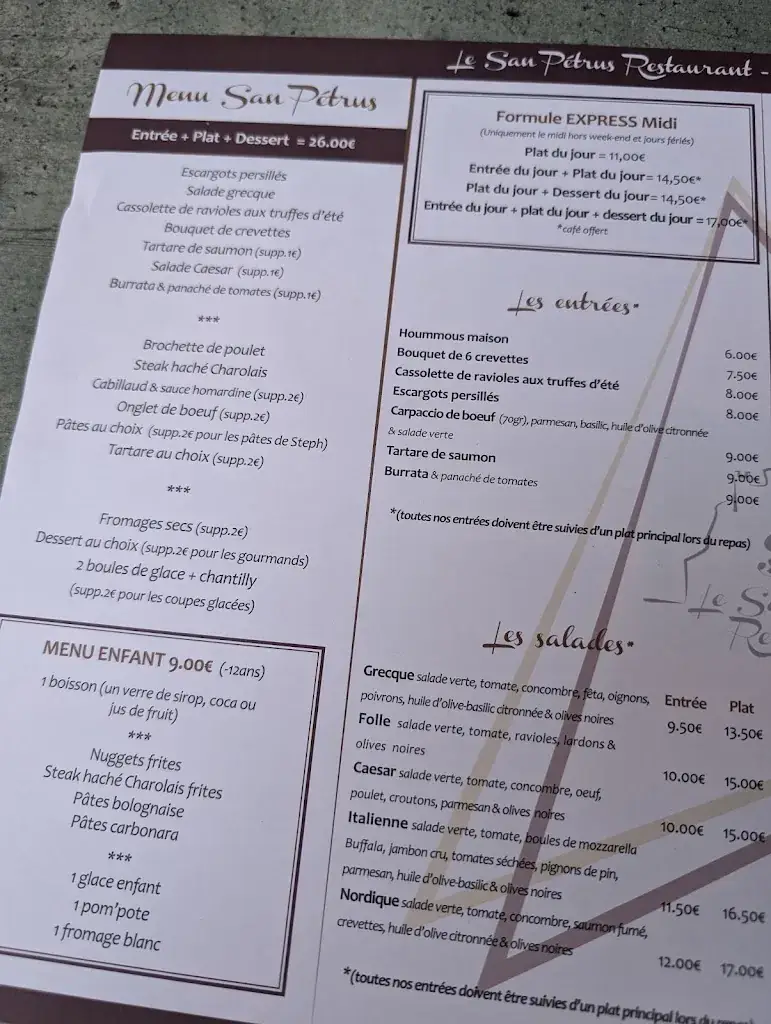 Le San Pétrus Restaurant -
Menu San Pétrus
Entrée + Plat + Dessert = 26.00€
Escargots persillés
Salade grecque
Cassolette de ravioles aux truffes d'été
Bouquet de crevettes
Tartare de saumon (supp.1€)
Salade Caesar (supp.1€)
Burrata & panaché de tomates (supp.1€)
***
Brochette de poulet
Steak haché Charolais
Cabillaud & sauce homardine (supp.2€)
Onglet de boeuf (supp.2€)
Pâtes au choix (supp.2€ pour les pâtes de Steph)
Tartare au choix (supp.2€)
***
Fromages secs (supp.2€)
Dessert au choix (supp.2€ pour les gourmands)
2 boules de glace + chantilly
(supp.2€ pour les coupes glacées)
MENU ENFANT 9.00€ (-12ans)
1 boisson (un verre de sirop, coca ou
jus de fruit)
***
Nuggets frites
Steak haché Charolais frites
Pâtes bolognaise
Pâtes carbonara
***
1 glace enfant
1 pom'pote
1 fromage blanc
Formule EXPRESS Midi
(Uniquement le midi hors week-end et jours fériés)
Plat du jour = 11,00€
Entrée du jour + Plat du jour= 14,50€*
Plat du jour + Dessert du jour= 14,50€*
Entrée du jour + plat du jour + dessert du jour =17,00€*
*café offert
Les entrées*
Hoummous maison 6.00€
Bouquet de 6 crevettes 7.50€
Cassolette de ravioles aux truffes d'été 8.00€
Escargots persillés 8.00€
Carpaccio de boeuf (70gr), parmesan, basilic, huile d'olive citronnée
& salade verte 9.00€
Tartare de saumon 9.00€
Burrata & panaché de tomates 9.00€
*(toutes nos entrées doivent être suivies d'un plat principal lors du repas)
Le Sa
Re
Les salades*
Entrée Plat
Grecque salade verte, tomate, concombre, fêta, oignons,
poivrons, huile d'olive-basilic citronnée & olives noires 9.50€ 13.50€
Folle salade verte, tomate, ravioles, lardons &
olives noires 10.00€ 15.00€
Caesar salade verte, tomate, concombre, oeuf,
poulet, croutons, parmesan & olives noires 10.00€ 15.00€
Italienne salade verte, tomate, boules de mozzarella
Buffala, jambon cru, tomates séchées, pignons de pin,
parmesan, huile d'olive-basilic & olives noires 11.50€ 16.50€
Nordique salade verte, tomate, concombre, saumon fumé,
crevettes, huile d'olive citronnée & olives noires 12.00€ 17.00€
*(toutes nos entrées doivent être suivies d'un plat principal lors du